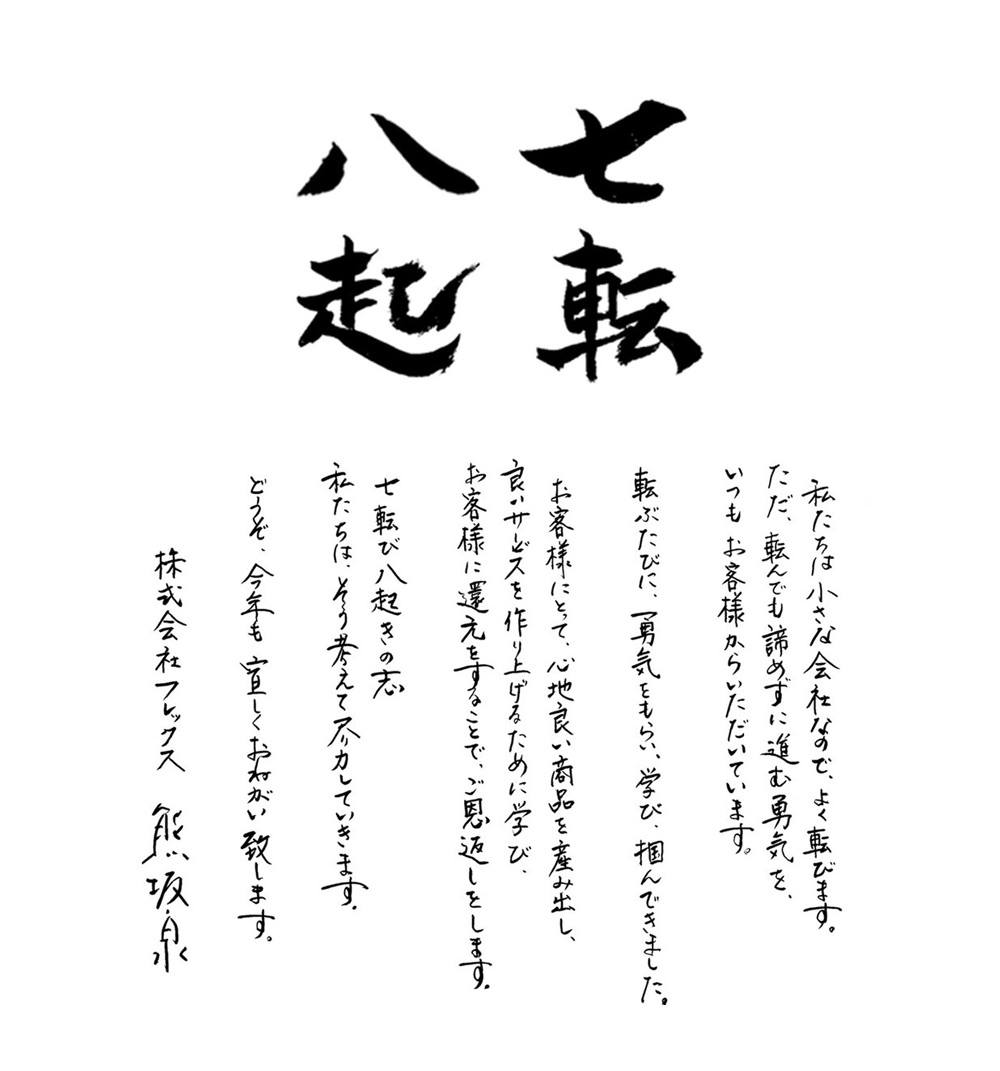 七転
八起
私たちは小さな会社なので、よく転びます。
ただ、転んでも諦めずに進む勇気を、
いつもお客様からいただいています。
転ぶたびに、勇気をもらい、学び、掴んできました。
お客様にとって、心地良い商品を産み出し、
良いサービスを作り上げるために学び、
お客様に還元をすることで、ご恩返しをします。
七転び八起きの志
私たちは、そう考えて尽力していきます。
どうぞ、今年も宜しくおねがい致します。
株式会社フレックス 熊坂泉